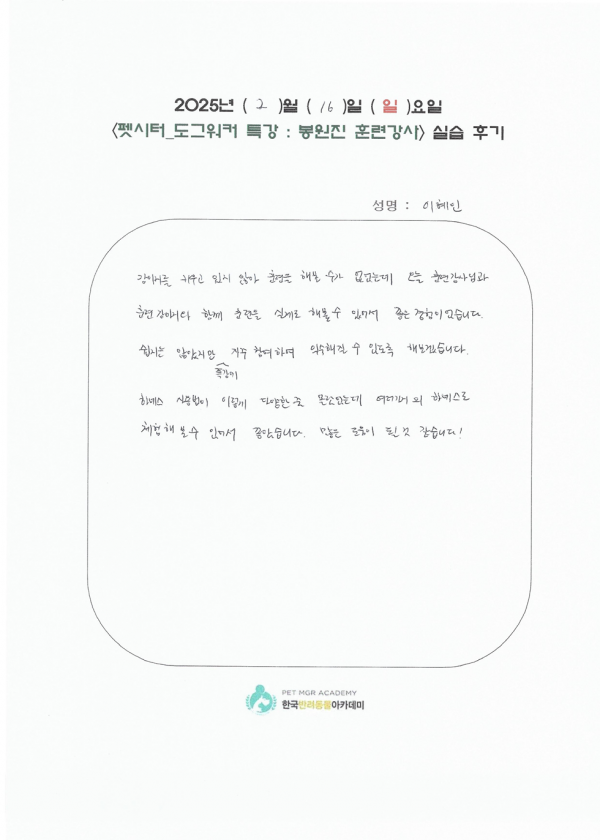 2025년 ( 2 )월 ( 16 )일 ( 일 )요일
<펫시터_도그워커 특강 : 봉원진 훈련강사> 실습 후기
성명 : 이혜인
강아지를 키우고 있지 않아 훈련을 해볼 수가 없었는데 오늘 훈련강사님과
훈련 강아지와 함께 훈련을 실제로 해볼 수 있어서 좋은 경험이었습니다.
쉽지는 않았지만 자주 참여하며 익숙해질 수 있도록 해보겠습니다.
특강에
하네스 사용법이 이렇게 다양한 줄 몰랐었는데 여러가지의 하네스로
체험해 볼 수 있어서 좋았습니다. 많은 도움이 된 것 같습니다!
PET MGR ACADEMY
한국반려동물아카데미